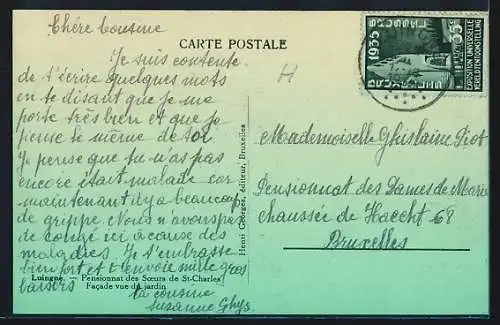 Chère Cousine
CARTE POSTALE
Je suis contente
de t'écrire quelques mots
en te disant que je me
porte très bien et que je
pense le même de toi
Je pense que tu n'as pas
encore était malade car
maintenant il y a beaucoup
de grippe. Nous n'avons pas
de congé ici à cause des
maladies. Je t'embrasse
bien fort et t'envoie mille gros
baisers
ta cousine
Suzanne Ghys.
Luingne. — Pensionnat des Sœurs de St-Charles
Façade vue du jardin
Henri Georges, éditeur, Bruxelles
H
1935
BRUXELLES
BRUSSEL
35c
EXPOSITION UNIVERSELLE
WERELDTENTOONSTELLING
Mademoiselle Ghislaine Piot
Pensionnat des Dames de Marie
chaussée de Haecht 68
Bruxelles